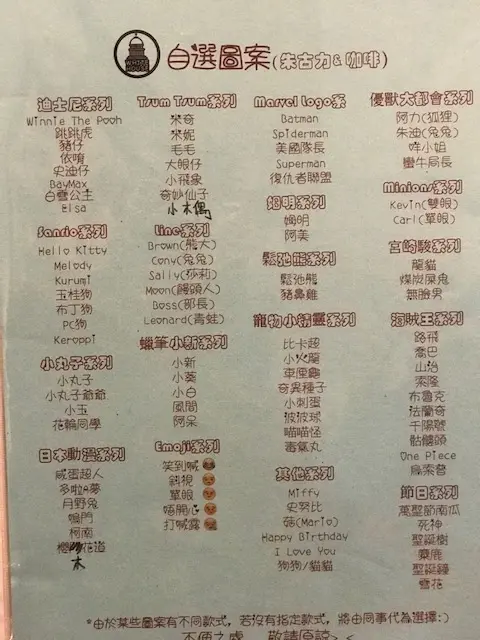 自選圖案(朱古力&咖啡)
迪士尼系列
Winnie The Pooh
跳跳虎
豬仔
依唷
史迪仔
BayMax
白雪公主
Elsa
Sanrio系列
Hello Kitty
Melody
Kurumi
玉桂狗
布丁狗
PC狗
Keroppi
小丸子系列
小丸子
小丸子爺爺
小玉
花輪同學
日本動漫系列
咸蛋超人
多啦A夢
月野兔
鳴門
柯南
櫻花道
木
Tsum Tsum系列
米奇
米妮
毛毛
大眼仔
小飛象
奇妙仙子
小木偶
Line系列
Brown(熊大)
Cony(兔兔)
Sally(莎莉)
Moon(饅頭人)
Boss(部長)
Leonard(青蛙)
蠟筆小新系列
小新
小葵
小白
風間
阿呆
Emoji系列
笑到喊
斜視
單眼
唔開心
打喊露
Marvel Logo系
Batman
Spiderman
美國隊長
Superman
復仇者聯盟
姆明系列
姆明
阿美
鬆弛熊系列
鬆弛熊
豬鼻雞
寵物小精靈系列
比卡超
小火龍
車厘龜
奇異種子
小刺蛋
波波球
喵喵怪
毒鯊丸
其他系列
Miffy
史努比
菇(Mario)
Happy Birthday
I Love You
狗狗/貓貓
優獸大都會系列
阿力(狐狸)
朱迪(兔兔)
咩小姐
蠻牛局長
Minions系列
Kevin(雙眼)
Carl(單眼)
宮崎駿系列
龍貓
煤炭屎鬼
無臉男
海賊王系列
路飛
喬巴
山治
索隆
布魯克
法蘭奇
千陽號
骷髏頭
One Piece
烏索普
節日系列
萬聖節南瓜
死神
聖誕樹
麋鹿
聖誕鐘
雪花
*由於某些圖案有不同款式，若沒有指定款式，將由同事代為選擇:)
不便之處 敬請原諒><